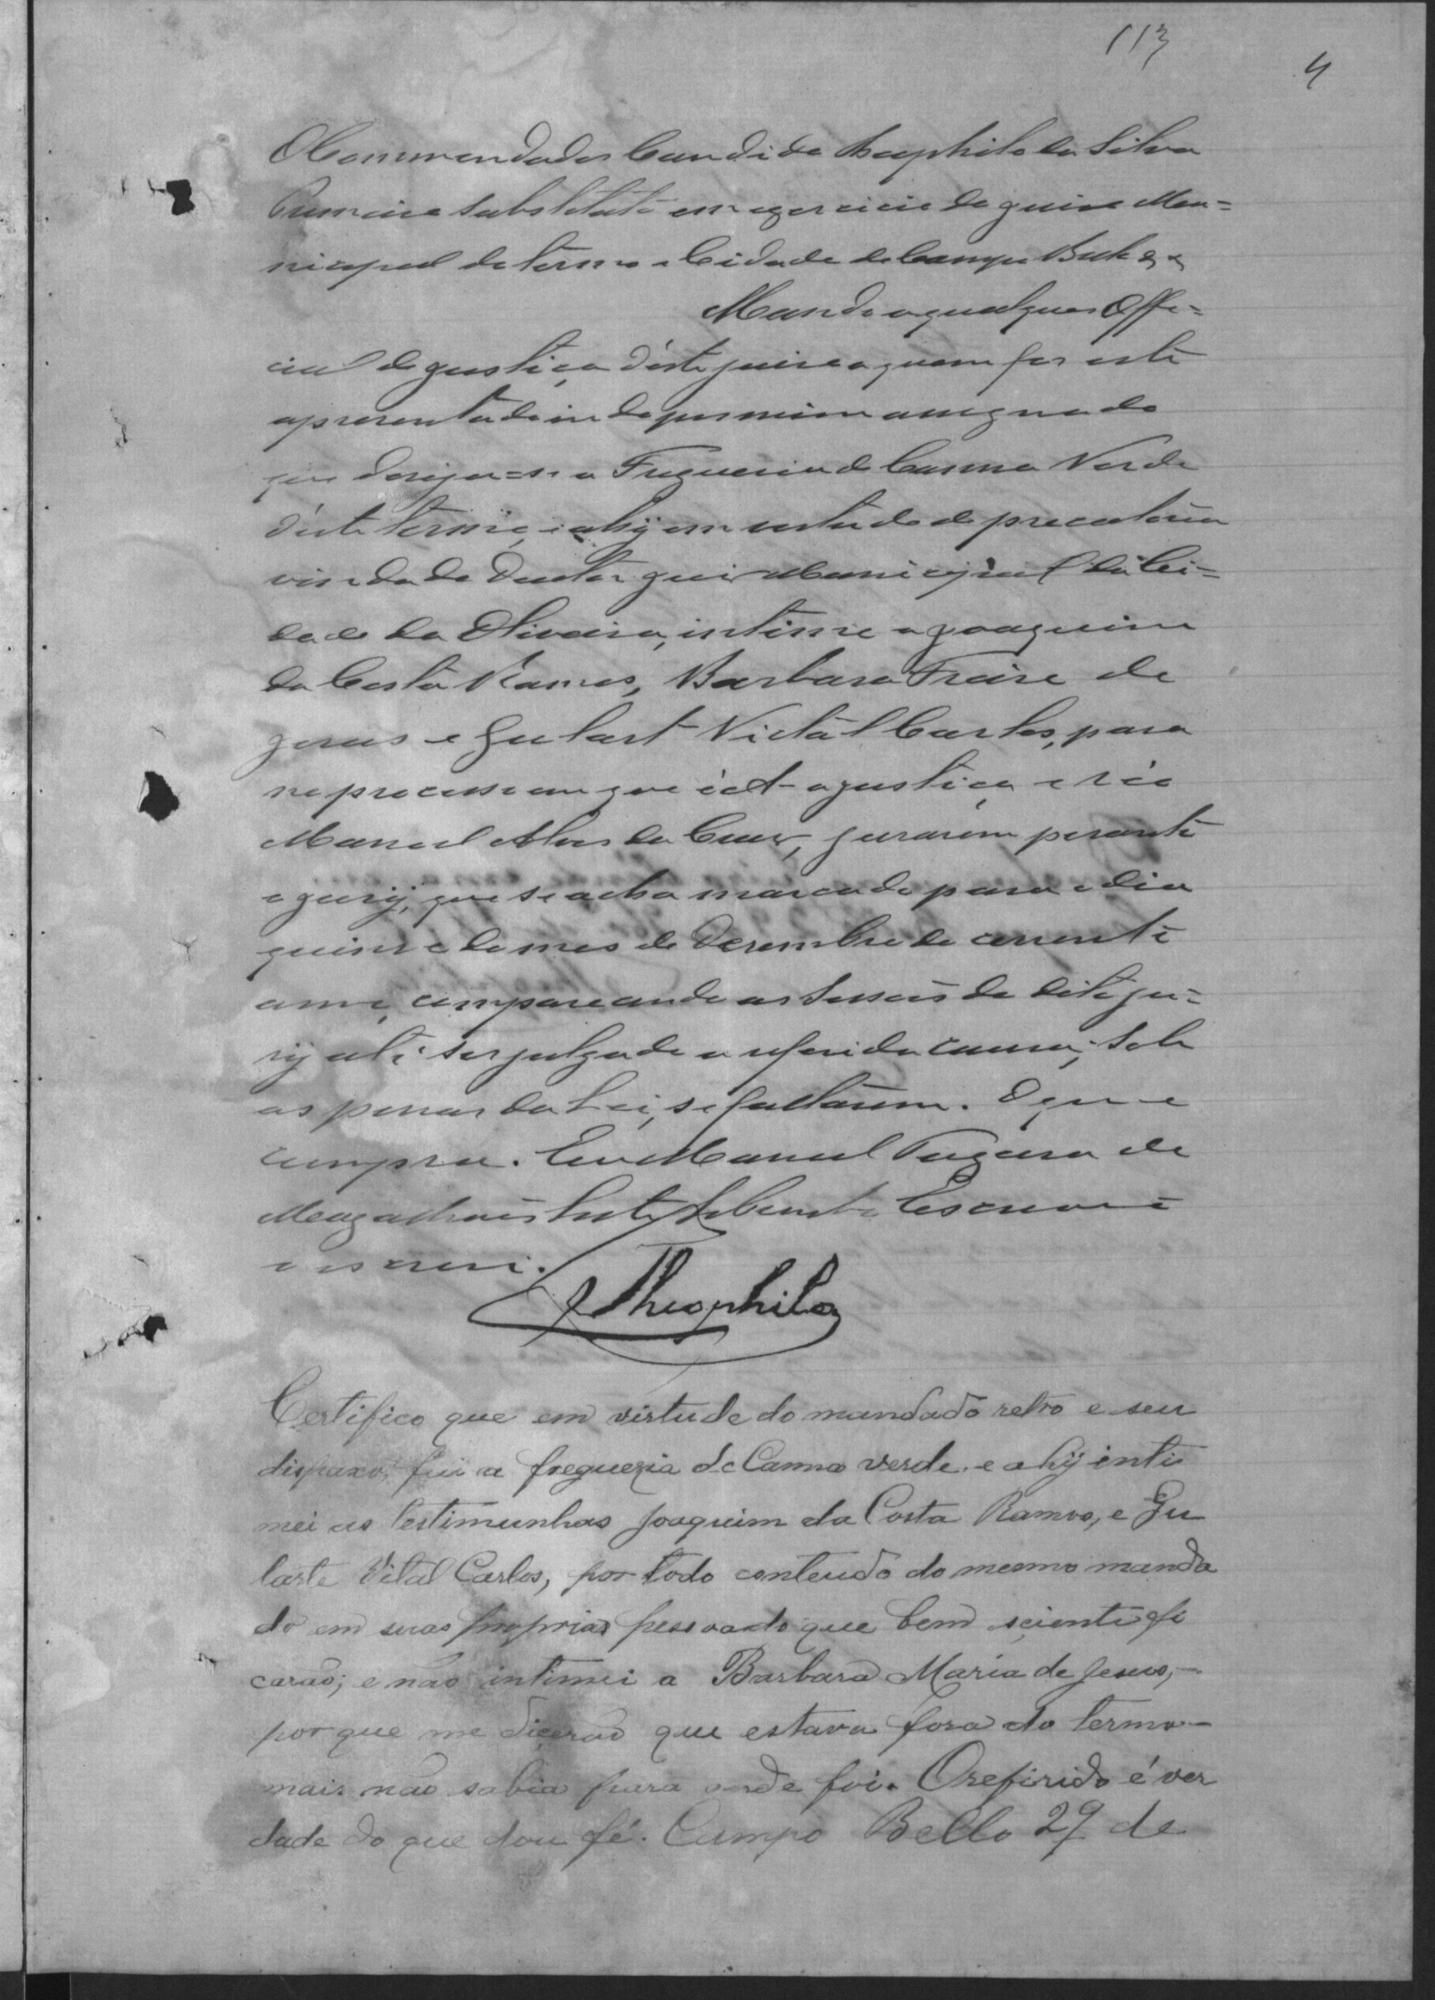 113
4
O Commendador Candido Theophilo da Silva
Primeiro Substituto em exercicio de juiz Mu=
nicipal do termo e Cidade de Campo Bello &
Mando a qualquer Offi=
cial de justiça d'este juizo a quem for este
apresentado indo por mim assignado
que derija=se a Freguezia de Canna Verde
d'este termo, e ahy em virtude de precatoria
vinda do Doutor juiz Municipal da Ci=
dade da Oliveira, intime a Joaquim
da Costa Ramos, Barbara Freire de
Jesus e Gulart Victal Carlos, para
no processo em que é A a justiça e réo
Manoel Alves da Cruz, jurarem perante
o jury, que se acha marcado para o dia
quinze do mes de Dezembro do corrente
anno, comparecendo as Sessões do dito ju=
ry até ser julgada a referida causa; Sob
as penas da Lei, se faltarem. O que
cumpra. Eu Manoel de
Magalhaes Escrivão
o escrevi.
Theophilo
Certifico que em virtude do mandado retro e seu
dispaxo, fui a freguezia de Canna verde e ahy inti
mei as testimunhas Joaquim da Costa Ramos, e Gu
larte Vital Carlos, por todo conteudo do mesmo manda
do em suas proprias pessoas do que bem sciente fi
carão; e não intimei a Barbara Maria de Jesus,
por que me dicerão que estava fora do termo
mais não sabia para onde foi. O refirido é ver
dade do que dou fé. Campo Bello 29 de